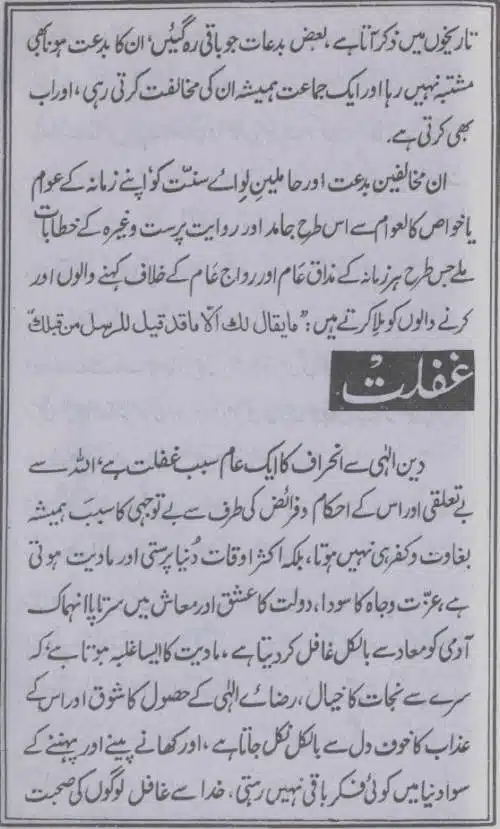 تاریخوں میں ذکر آتا ہے، بعض بدعات جو باقی رہ گئیں، ان کا بدعت ہونا بھی
مشتبہ نہیں رہا اور ایک جماعت ہمیشہ ان کی مخالفت کرتی رہی، اور اب
بھی کرتی ہے۔
ان مخالفینِ بدعت اور حاملینِ لوائے سنّت کو اپنے زمانہ کے عوام
یا خواص کالعوام سے اس طرح جامد اور روایت پرست وغیرہ کے خطابات
ملے جس طرح ہر زمانہ کے مذاق عام اور رواج عام کے خلاف کہنے والوں اور
کرنے والوں کو ملا کرتے ہیں: "مایقال لك الّا ماقد قیل للرسل من قبلك"
غفلت
دین الٰہی سے انحراف کا ایک عام سبب غفلت ہے، اللہ سے
بے تعلقی اور اس کے احکام و فرائض کی طرف سے بے توجہی کا سبب ہمیشہ
بغاوت و کفر ہی نہیں ہوتا، بلکہ اکثر اوقات دُنیا پرستی اور مادیت ہوتی
ہے، عزّت و جاہ کا سودا، دولت کا عشق اور معاش میں سرتاپا انہماک
آدمی کو معاد سے بالکل غافل کردیتا ہے، مادیت کا ایسا غلبہ ہوتا ہے کہ
سرے سے نجات کا خیال، رضائے الٰہی کے حصول کا شوق اور اس کے
عذاب کا خوف دل سے بالکل نکل جاتا ہے، اور کھانے پینے اور پہننے کے
سوا دنیا میں کوئی فکر باقی نہیں رہتی، خدا سے غافل لوگوں کی صحبت